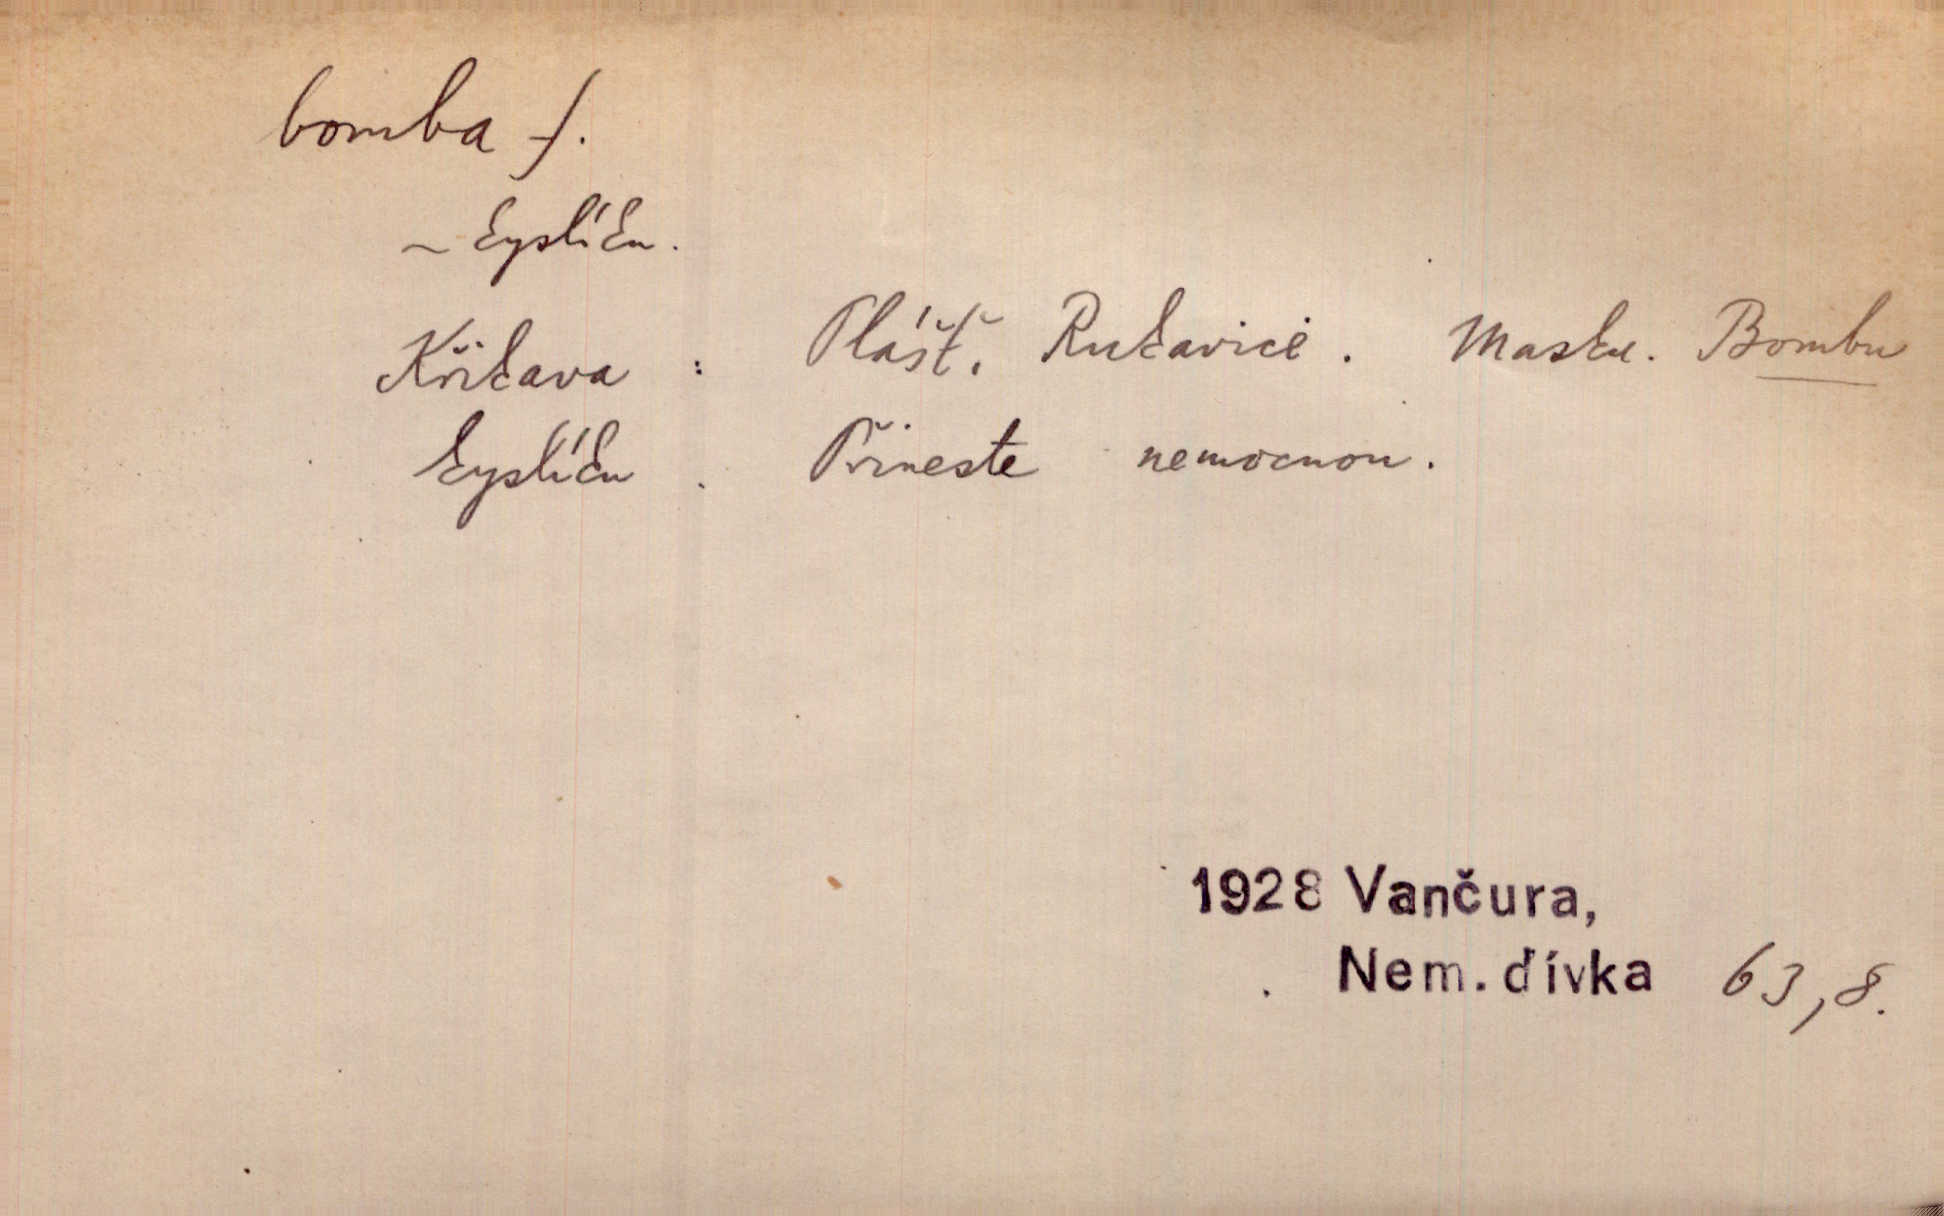 bomba f.
~ kyslíku.
Křikava : Plášť. Rukavice. Masku. Bombu
kyslíku. Přineste nemocnou.
1928 Vančura,
Nem. dívka 63,8.